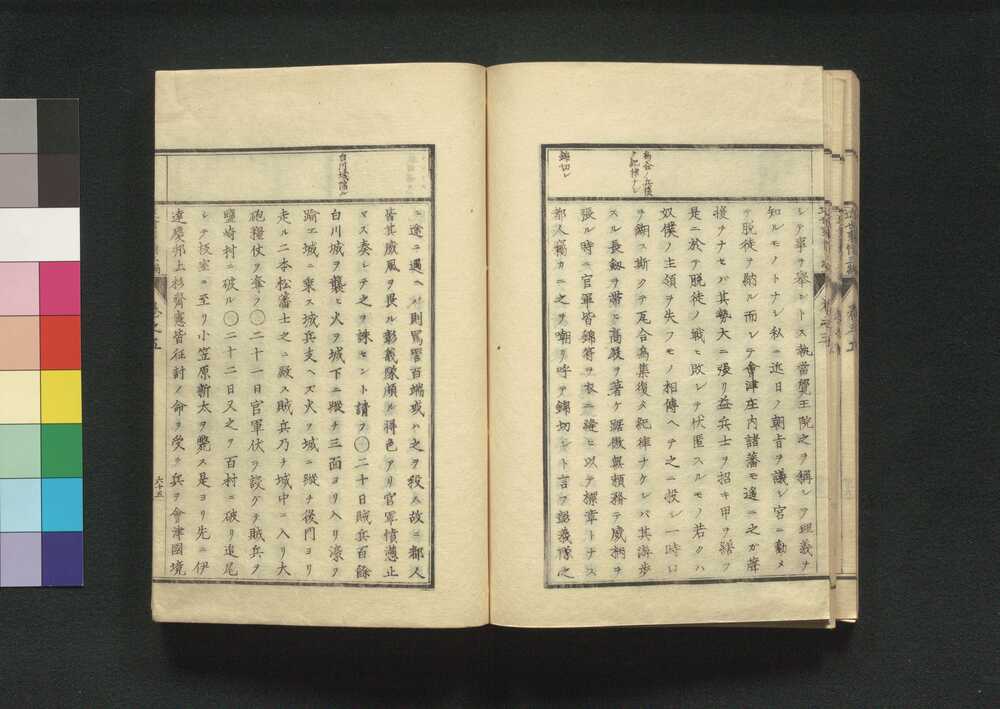 烏合ノ兵復
タ紀律ナシ
錦切レ
シテ事ヲ挙ントス執當覺王院之ヲ稱シテ理義ヲ
知ルモノトナシ私ニ近日ノ朝旨ヲ議シ宮ニ勸メ
テ脱徒ヲ納ル而シテ會津庄内諸藩モ遙ニ之ガ聲
援ヲナセバ其勢大ニ張リ益兵士ヲ招キ甲ヲ繕フ
是ニ於テ脱徒ノ戰ヒ敗レテ伏匿スルモノ若クハ
奴僕ノ主領ヲ失フモノ相傳ヘテ之ニ投シ一時口
ヲ餬ス斯クテ瓦合烏集復タ紀律ナケレバ其游歩
スル長劔ヲ帯ヒ高屐ヲ著ケ踞傲無頼務テ威柄ヲ
張ル時ニ官軍皆錦符ヲ衣ニ縫ヒ以テ標章トナス
都人竊カニ之ヲ嘲リ呼テ錦切レト言フ彰義隊之
白川城陷ル
ニ途ニ遇ヘハ則罵詈百端或ハ之ヲ殺ス故ニ都人
皆其威風ヲ畏ル彰義隊頗ル得色アリ官軍憤懣止
マス奏シテ之ヲ誅セント請フ〇二十日賊兵百餘
白川城ヲ襲ヒ火ヲ城下ニ縱チ三面ヨリ入リ濠ヲ
踰エ城ニ乗ス城兵支ヘズ火ヲ城ニ縱チ後門ヨリ
走ル二本松藩士之ニ殿ス賊兵乃チ城中ニ入リ大
砲糧仗ヲ奪フ〇二十一日官軍伏ヲ設ケテ賊兵ヲ
鹽崎村ニ破ル〇二十二日又之ヲ百村ニ破リ追尾
シテ板室ニ至リ小笠原新太ヲ斃ス是ヨリ先ニ伊
達慶邦上杉齊憲皆征討ノ命ヲ受テ兵ヲ會津國境
卷之五
六十五